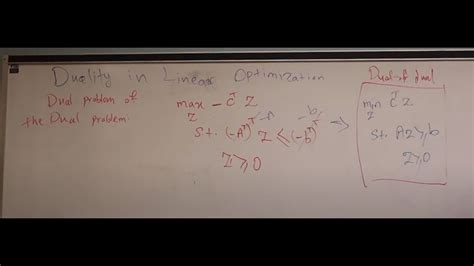 Duality in Linear Optimization
Dual problem of
the Dual problem.
max -c^T z
z
s.t. (-A^T)^T z ≤ (-b^T)^T
-A
-b
z ≥ 0
Dual of dual
min c^T z
z
s.t. Az ≥ b
z ≥ 0